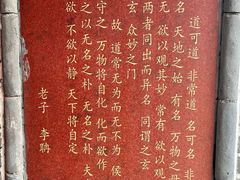 道可道 非常道 名可名 非
名 天地之始 有名 万物之母
无 欲以观其妙 常有 欲以观
两者同出而异名 同谓之玄
玄 众妙之门
故 道常无为而无不为 侯
守之 万物将自化 化而欲作
之以无名之朴 无名之朴 夫
欲 不欲以静 天下将自定
老子 李聃